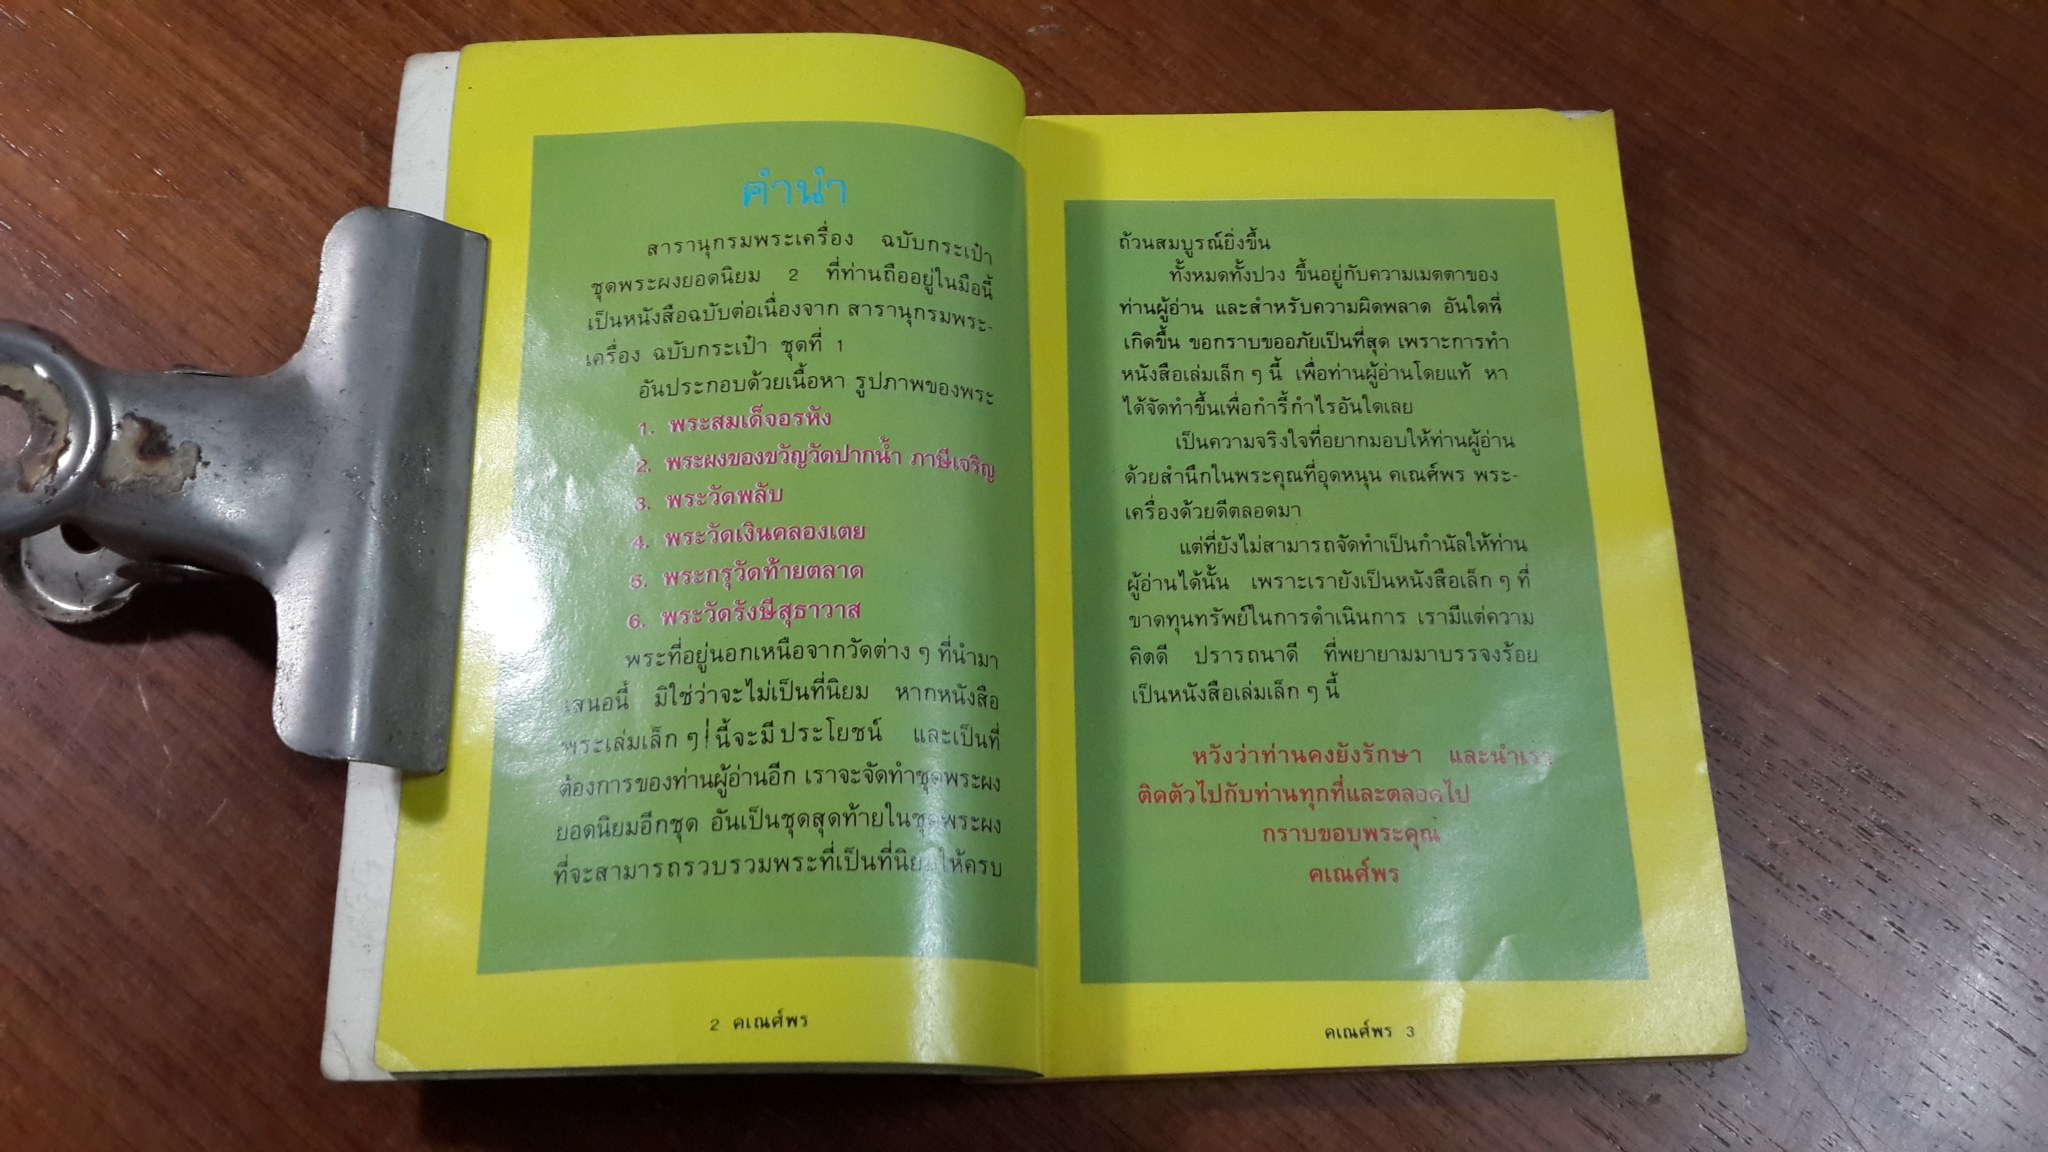 คำนำ
สารานุกรมพระเครื่อง ฉบับกระเป๋า
ชุดพระผงยอดนิยม 2 ที่ท่านถืออยู่ในมือนี้
เป็นหนังสือฉบับต่อเนื่องจาก สารานุกรมพระ-
เครื่อง ฉบับกระเป๋า ชุดที่ 1
อันประกอบด้วยเนื้อหา รูปภาพของพระ
1. พระสมเด็จอรหัง
2. พระผงของขวัญวัดปากน้ำ ภาษีเจริญ
3. พระวัดพลับ
4. พระวัดเงินคลองเตย
5. พระกรุวัดท้ายตลาด
6. พระวัดรังษีสุธาวาส
พระที่อยู่นอกเหนือจากวัดต่าง ๆ ที่นำมา
เสนอนี้ มิใช่ว่าจะไม่เป็นที่นิยม หากหนังสือ
พระเล่มเล็ก ๆ นี้จะมีประโยชน์ และเป็นที่
ต้องการของท่านผู้อ่านอีก เราจะจัดทำชุดพระผง
ยอดนิยมอีกชุด อันเป็นชุดสุดท้ายในชุดพระผง
ที่จะสามารถรวบรวมพระที่เป็นที่นิยมให้ครบ
2 คเณศ์พร
ถ้วนสมบูรณ์ยิ่งขึ้น
ทั้งหมดทั้งปวง ขึ้นอยู่กับความเมตตาของ
ท่านผู้อ่าน และสำหรับความผิดพลาด อันใดที่
เกิดขึ้น ขอกราบขออภัยเป็นที่สุด เพราะการทำ
หนังสือเล่มเล็ก ๆ นี้ เพื่อท่านผู้อ่านโดยแท้ หา
ได้จัดทำขึ้นเพื่อกำรี้กำไรอันใดเลย
เป็นความจริงใจที่อยากมอบให้ท่านผู้อ่าน
ด้วยสำนึกในพระคุณที่อุดหนุน คเณศ์พร พระ-
เครื่องด้วยดีตลอดมา
แต่ที่ยังไม่สามารถจัดทำเป็นกำนัลให้ท่าน
ผู้อ่านได้นั้น เพราะเรายังเป็นหนังสือเล็ก ๆ ที่
ขาดทุนทรัพย์ในการดำเนินการ เรามีแต่ความ
คิดดี ปรารถนาดี ที่พยายามมาบรรจงร้อย
เป็นหนังสือเล่มเล็ก ๆ นี้
หวังว่าท่านคงยังรักษา และนำเรา
ติดตัวไปกับท่านทุกที่และตลอดไป
กราบขอบพระคุณ
คเณศ์พร
คเณศ์พร 3